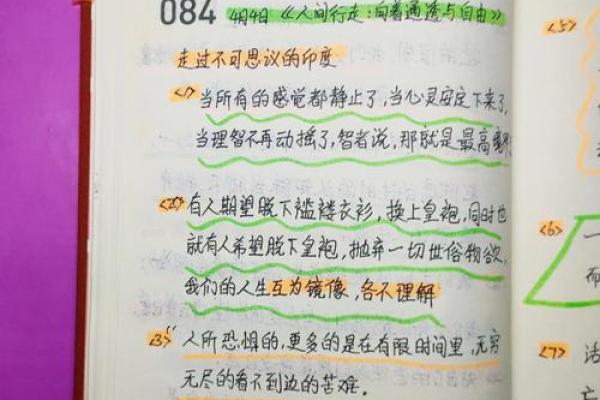 084 4月4日《人间行走:向着通透与自由》
走过不可思议的印度
<1>当所有的感觉都静止了,当心灵安定下来了,
当理智不再动摇了,智者说,那就是最高境界
<2>有人期望脱下褴褛衣衫,换上皇袍,同时也
就有人希望脱下皇袍,抛弃一切世俗物欲,
我们的人生互为镜像,各不理解
<3>"人所恐惧的,更多的是在有限时间里,无穷
无尽的看不到边的苦难。
<5>
<6> 一
而
<7> 活